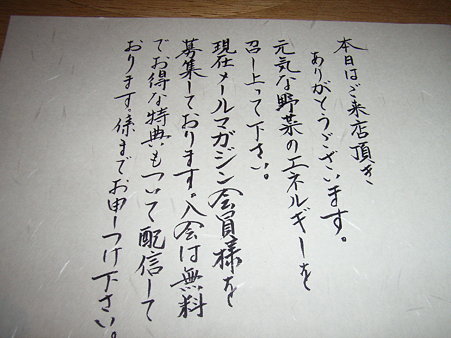 本日はご来店頂き
ありがとうございます。
元気な野菜のエネルギーを
召し上って下さい。
現在メールマガジン会員様を
募集しております。入会は無料
でお得な特典もついて配信して
おります。係までお申しつけ下さい。